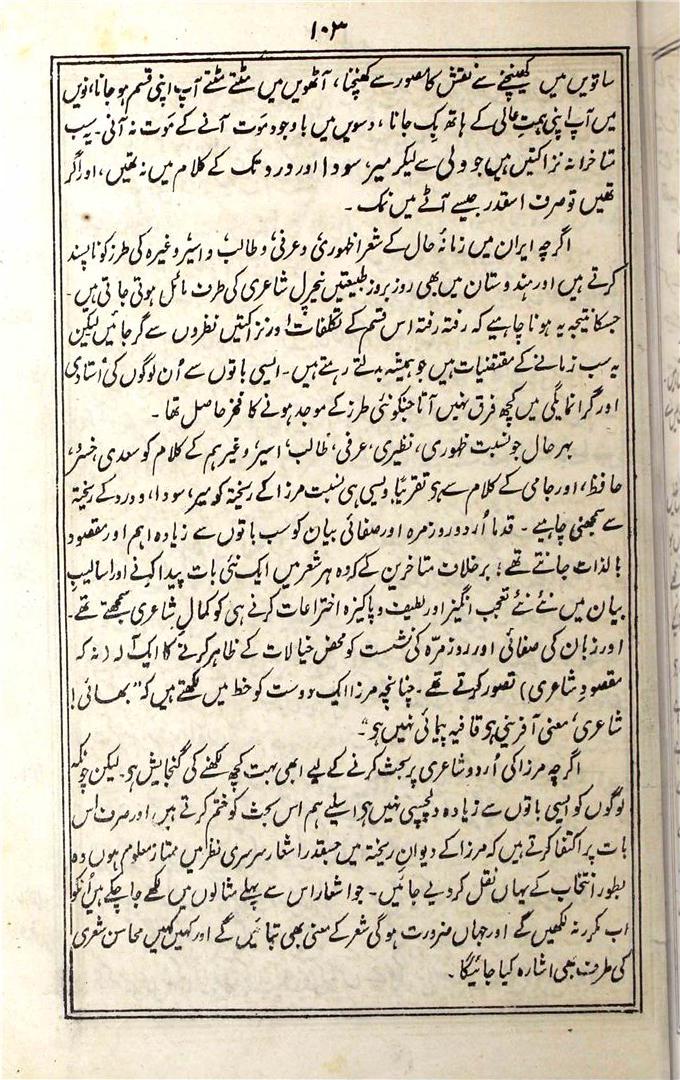 ۱۰۳
ساتویں میں کھینچنے سے نقش کا مصور سے کھنچنا، آٹھویں میں مٹتے مٹتے آپ اپنی قسم ہو جانا، نویں
میں آپ اپنی ہمتِ عالی کے ہاتھ بِک جانا، دسویں میں باوجود مَوت آنے کے مَوت نہ آنی۔ یہ سب
متاخرانہ نزاکتیں ہیں جو ولی سے لیکر میر، سودا اور درد تک کے کلام میں نہ تھیں، اور اگر
تھیں تو صرف اسقدر جیسے آٹے میں نمک۔
اگرچہ ایران میں زمانۂ حال کے شعرا ظہوری و عرفی و طالب و اسیر وغیرہ کی طرز کو ناپسند
کرتے ہیں اور ہندوستان میں بھی روز بروز طبیعتیں نیچرل شاعری کی طرف مائل ہوتی جاتی ہیں۔
جسکا نتیجہ یہ ہونا چاہیے کہ رفتہ رفتہ اس قسم کے تکلفات اور نزاکتیں نظروں سے گر جائیں لیکن
یہ سب زمانے کے مقتضیات ہیں جو ہمیشہ بدلتے رہتے ہیں۔ ایسی باتوں سے اُن لوگوں کی اُستادی
اور گرانمایگی میں کچھ فرق نہیں آتا جنکو نئی طرز کے موجد ہونے کا فخر حاصل تھا۔
بہر حال جو نسبت ظہوری، نظیری، عرفی، طالب، اسیر وغیرہم کے کلام کو سعدی، خسرو،
حافظ، اور جامی کے کلام سے ہو تقریباً ویسی ہی نسبت مرزا کے ریختہ کو میر، سودا، و درد کے ریختہ
سے سمجھنی چاہیے۔ قدما اُردو روزمرہ اور صفائی بیان کو سب باتوں سے زیادہ اہم اور مقصود
بالذات جانتے تھے؛ برخلاف متاخرین کے کہ وہ ہر شعر میں ایک نئی بات پیدا کرنے اور اسالیبِ
بیان میں نئے نئے تعجب انگیز اور لطیف و پاکیزہ اختراعات کرنے ہی کو کمالِ شاعری سمجھتے تھے۔
اور زبان کی صفائی اور روزمرّہ کی نشست کو محض خیالات کے ظاہر کرنے کا ایک آلہ (نہ کہ
مقصودِ شاعری) تصور کرتے تھے۔ چنانچہ مرزا ایک دوست کو خط میں لکھتے ہیں کہ ”بھائی!
شاعری، معنی آفرینی ہی قافیہ پیمائی نہیں ہی“۔
اگرچہ مرزا کی اُردو شاعری پر بحث کرنے کے لیے ابھی بہت کچھ لکھنے کی گنجایش ہی۔ لیکن چونکہ
لوگوں کو ایسی باتوں سے زیادہ دلچسپی نہیں ہی اسلیے ہم اس بحث کو ختم کرتے ہیں، اور صرف اس
بات پر اکتفا کرتے ہیں کہ مرزا کے دیوانِ ریختہ میں جسقدر اشعار سرسری نظر میں ممتاز معلوم ہوں وہ
بطور انتخاب کے یہاں نقل کر دیے جائیں۔ جو اشعار اس سے پہلے مثالوں میں لکھے جا چکے ہیں اُنکو
اب مکرر نہ لکھیں گے اور جہاں ضرورت ہوگی شعر کے معنی بھی بتائیں گے اور کہیں کہیں محاسن شعری
کی طرف بھی اشارہ کیا جائیگا۔